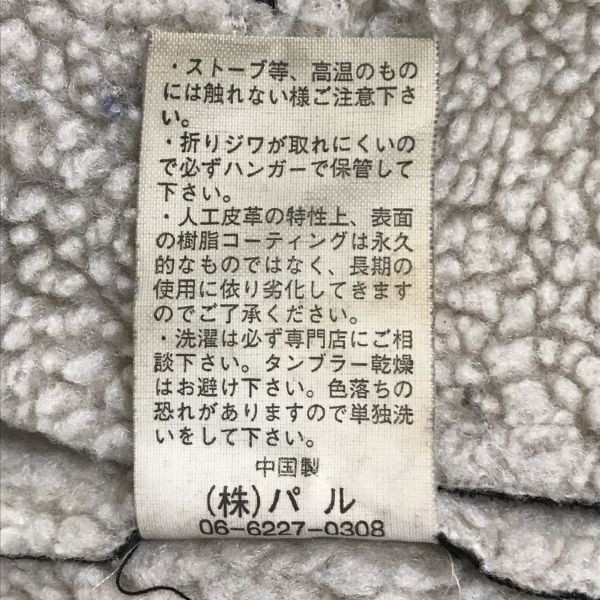 ・ストーブ等、高温のもの
には触れない様ご注意下さ
い。
・折りジワが取れにくいの
で必ずハンガーで保管して
下さい。
・人工皮革の特性上、表面
の樹脂コーティングは永久
的なものではなく、長期の
使用に依り劣化してきます
のでご了承ください。
・洗濯は必ず専門店にご相
談下さい。タンブラー乾燥
はお避け下さい。色落ちの
恐れがありますので単独洗
いをして下さい。
中国製
(株)パル
06-6227-0308